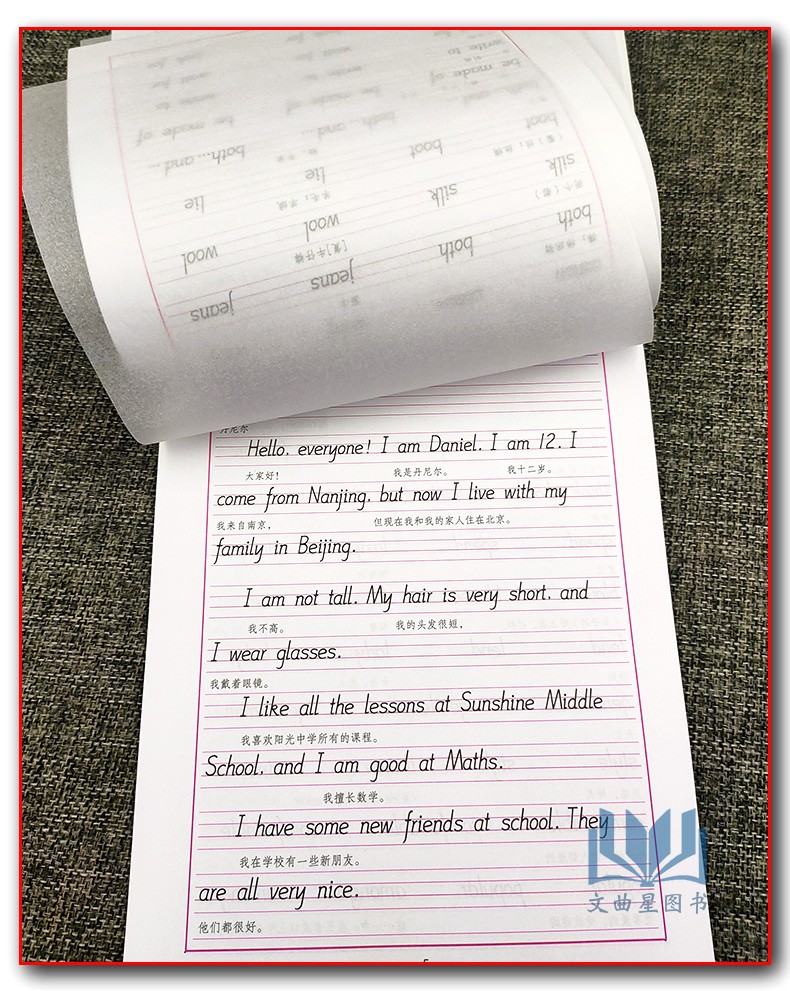 write to
be made of
be made of be made of
both...and... both...and... boot
lie lie boot silk
wool wool silk both
jeans jeans both
[复]牛仔裤
丹尼尔
Hello, everyone! I am Daniel. I am 12. I
大家好! 我是丹尼尔。 我十二岁。
come from Nanjing, but now I live with my
我来自南京, 但现在我和我的家人住在北京。
family in Beijing.
I am not tall. My hair is very short, and
我不高。 我的头发很短,
I wear glasses.
我戴着眼镜。
I like all the lessons at Sunshine Middle
我喜欢阳光中学所有的课程。
School, and I am good at Maths.
我擅长数学。
I have some new friends at school. They
我在学校有一些新朋友。
are all very nice.
他们都很好。
文曲星图书